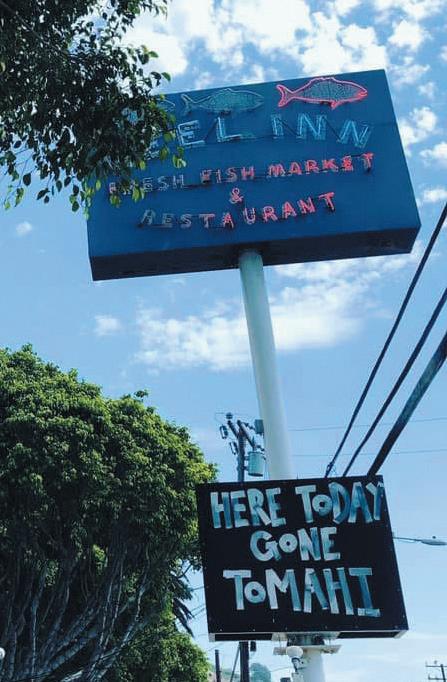 EEL INN
FRESH FISH MARKET
&
RESTAURANT
HERE TODAY
GONE
TOMAHI